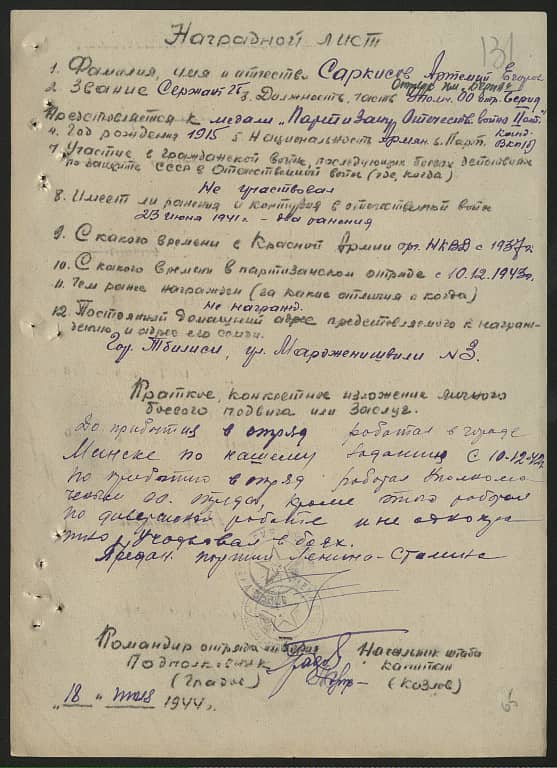 131
Наградной лист
1. Фамилия, имя и отчество Саркисов Артемий Егоров
2. Звание Сержант ГБ 3. Должность, часть Уполн. ОО отр. Берия
Отряд им. Берия
Представляется к медали "Партизану Отечеств. войны"
4. Год рождения 1915 5. Национальность Армян. 6. Парт. Канд. ВКП(б)
7. Участие в гражданской войне, последующих боевых действиях
по защите СССР в Отечественной войне (где, когда)
Не участвовал
8. Имеет ли ранения и контузия в отечественной войне
23 июня 1941 г. – два ранения
9. С какого времени в Красной Армии орг. НКВД с 1937 г.
10. С какого времени в партизанском отряде с 10.12.1943г.
11. Чем ранее награжден (за какие отличия и когда)
Не награжд.
12. Постоянный домашний адрес представляемого к награж-
дению и адрес его семьи.
Гор. Тбилиси, ул. Марджнишвили №3.
Краткое, конкретное изложение личного
боевого подвига или заслуг.
До прибытия в отряд работал в городе
Минске по нашему заданию с 10-12-43г.
по прибытию в отряд работал Уполномо
ченым ОО. отряда, кроме этого работал
по диверсионой работе и не однокра
тно участвовал в боях.
Предан партии Ленина-Сталина
Командир отряда им. Берия
Подполковник
(Градов)
Начальник штаба
капитан
(Козлов)
"18" июля 1944г.